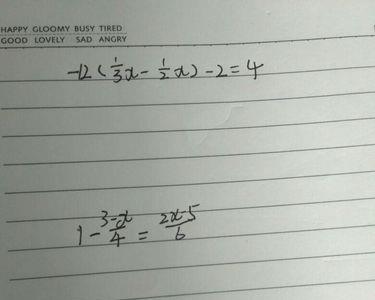 HAPPY GLOOMY BUSY TIRED
GOOD LOVELY SAD ANGRY
-12(1/3x - 1/2x) - 2 = 4
1 - (3-x)/4 = (2x-5)/6